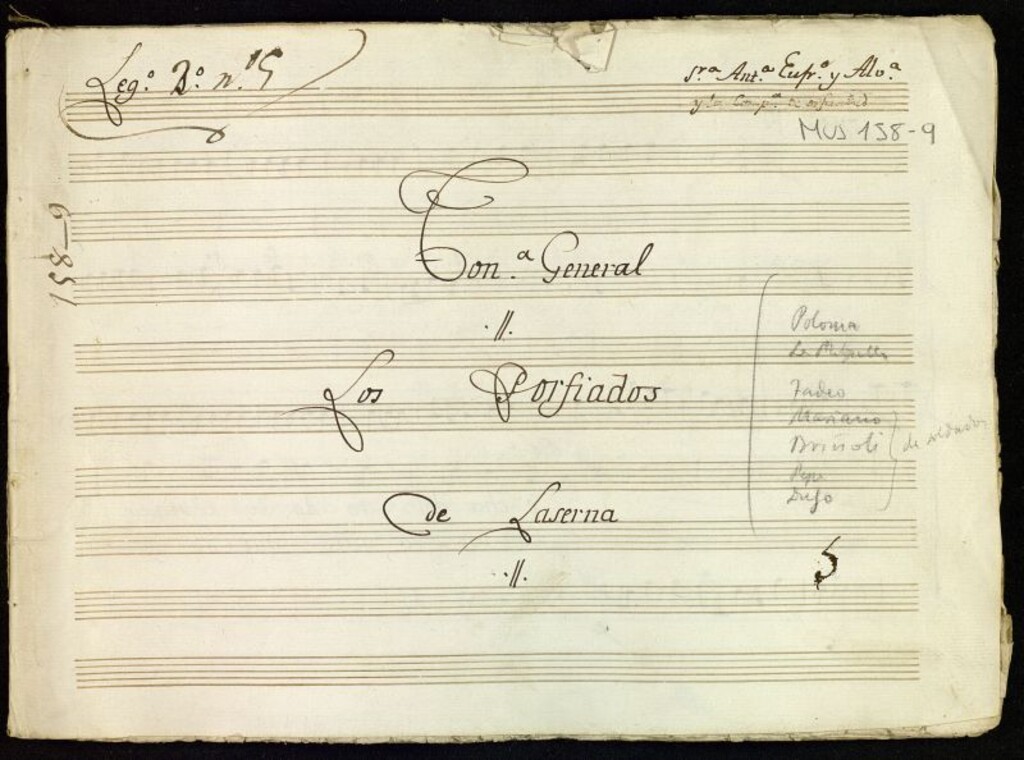 Leg.º 2.º n.º 5
Sr.ª Ant.ª Eufr.ª y Alv.ª
y la Comp.ª de
MUS 158-9
158-9
Ton.ª General
.//.
Los Porfiados
de Laserna
.//.
Polonia
La
Tadeo
Mariano
Briñoli
de soldados
Pepe
Diego
5